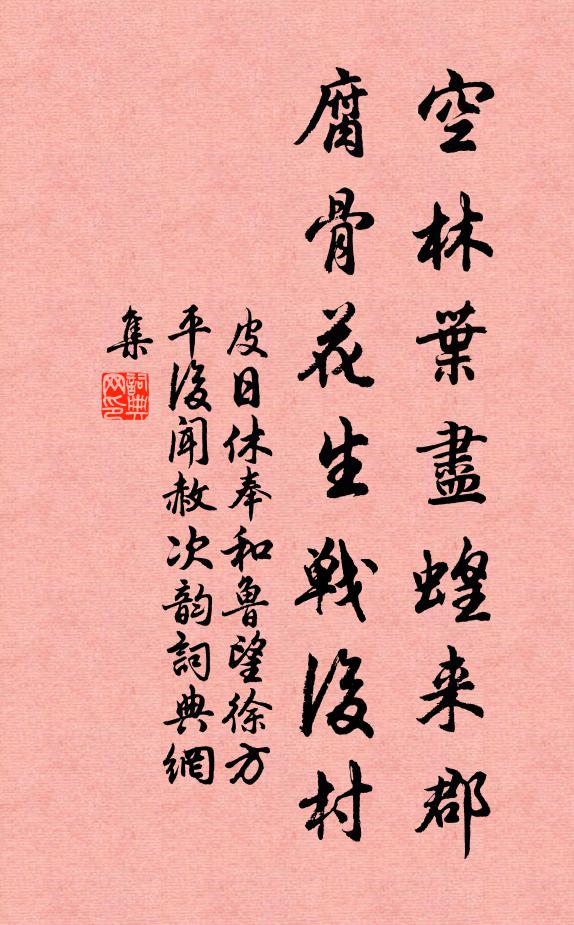 空林葉盡蝗来郡
腐骨花生戦後村
皮日休奉和魯望徐方
平後聞赦次韵詞典網
集
詞典網印